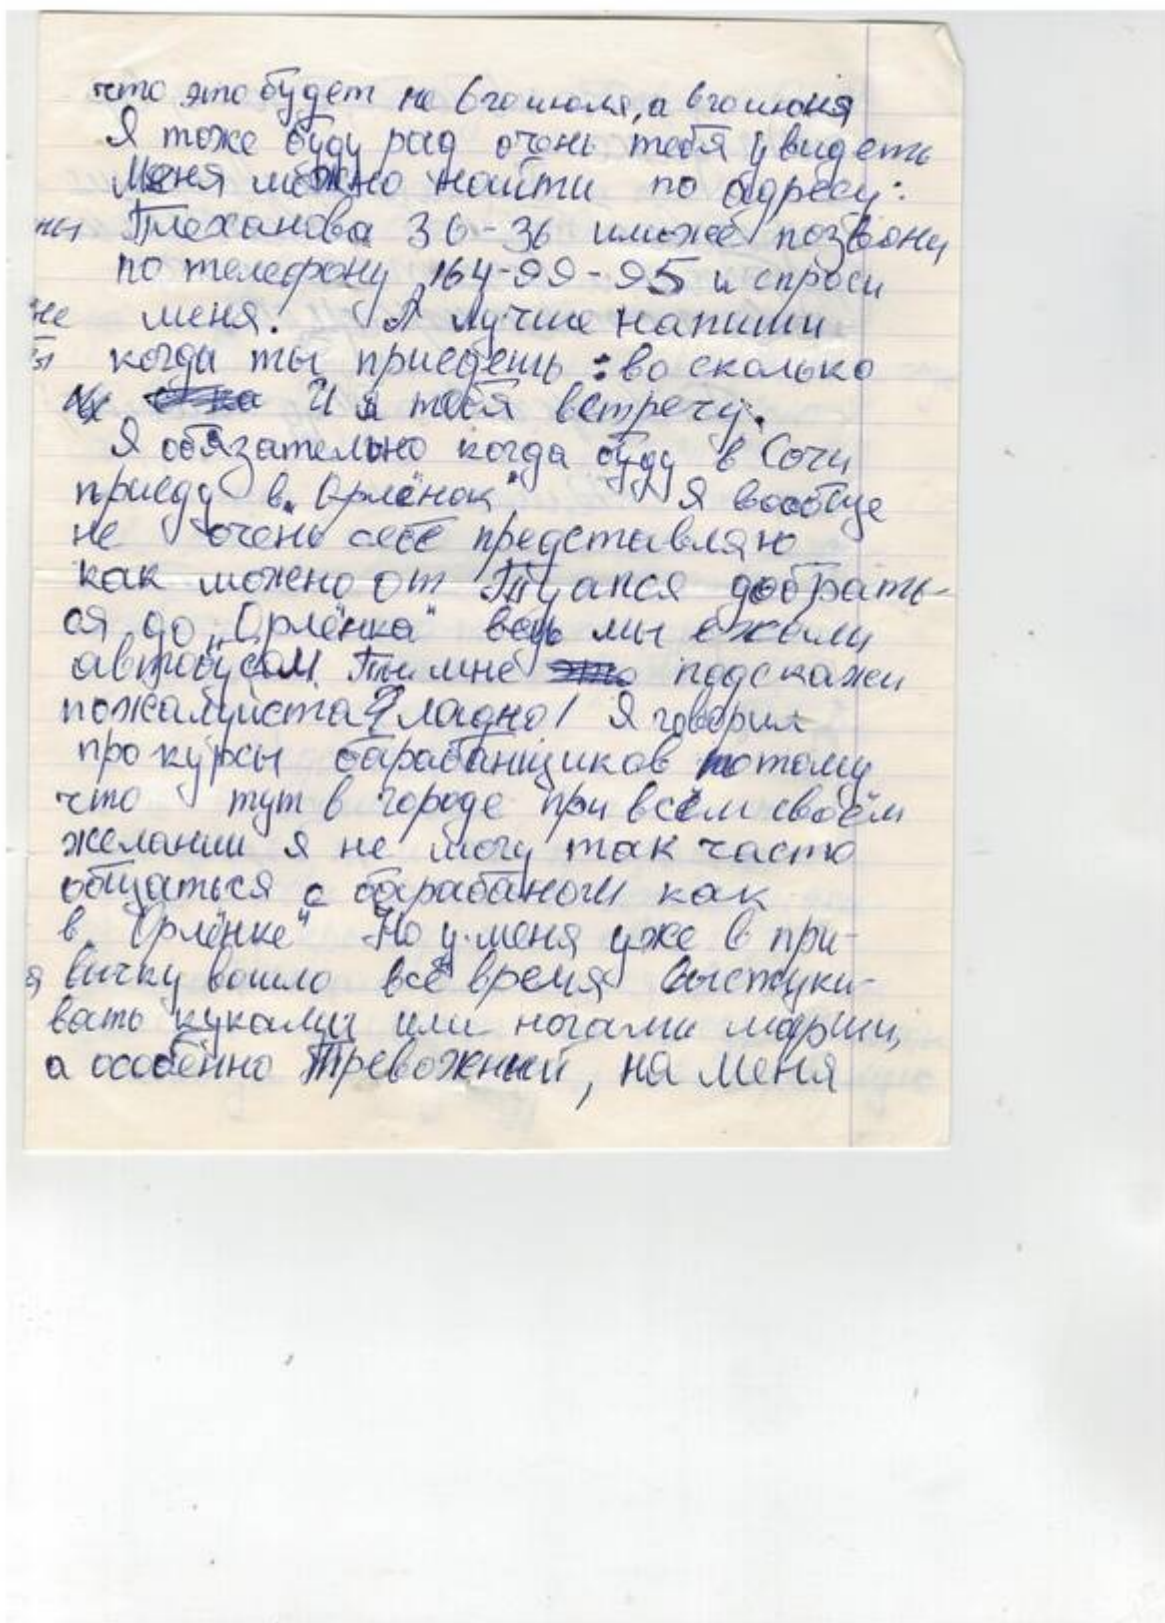 что это будет не 6го июля, а 6го июня
Я тоже буду рад очень тебя увидеть
Меня можно найти по адресу:
ны Плеханова 36-36 или же позвони
по телефону 164-99-95 и спроси
не меня! А лучше напиши
когда ты приедешь: во сколько
И я тебя встречу.
Я обязательно когда буду в Сочи
приеду в „Орлёнок" Я вообще
не очень себе представляю
как можно от Туапся добрать-
ся до „Орлёнка" ведь мы ехали
автобусом. Ты мне подскажи
пожалуйста? ладно! Я говорил
про курсы барабанщиков потому
что тут в городе при всём своём
желании я не могу так часто
общаться с барабаном как
в „Орлёнке" Но у меня уже в при-
я вычку вошло всё время выстуки-
вать куками или ногами марши,
а особенно Тревожный, на меня